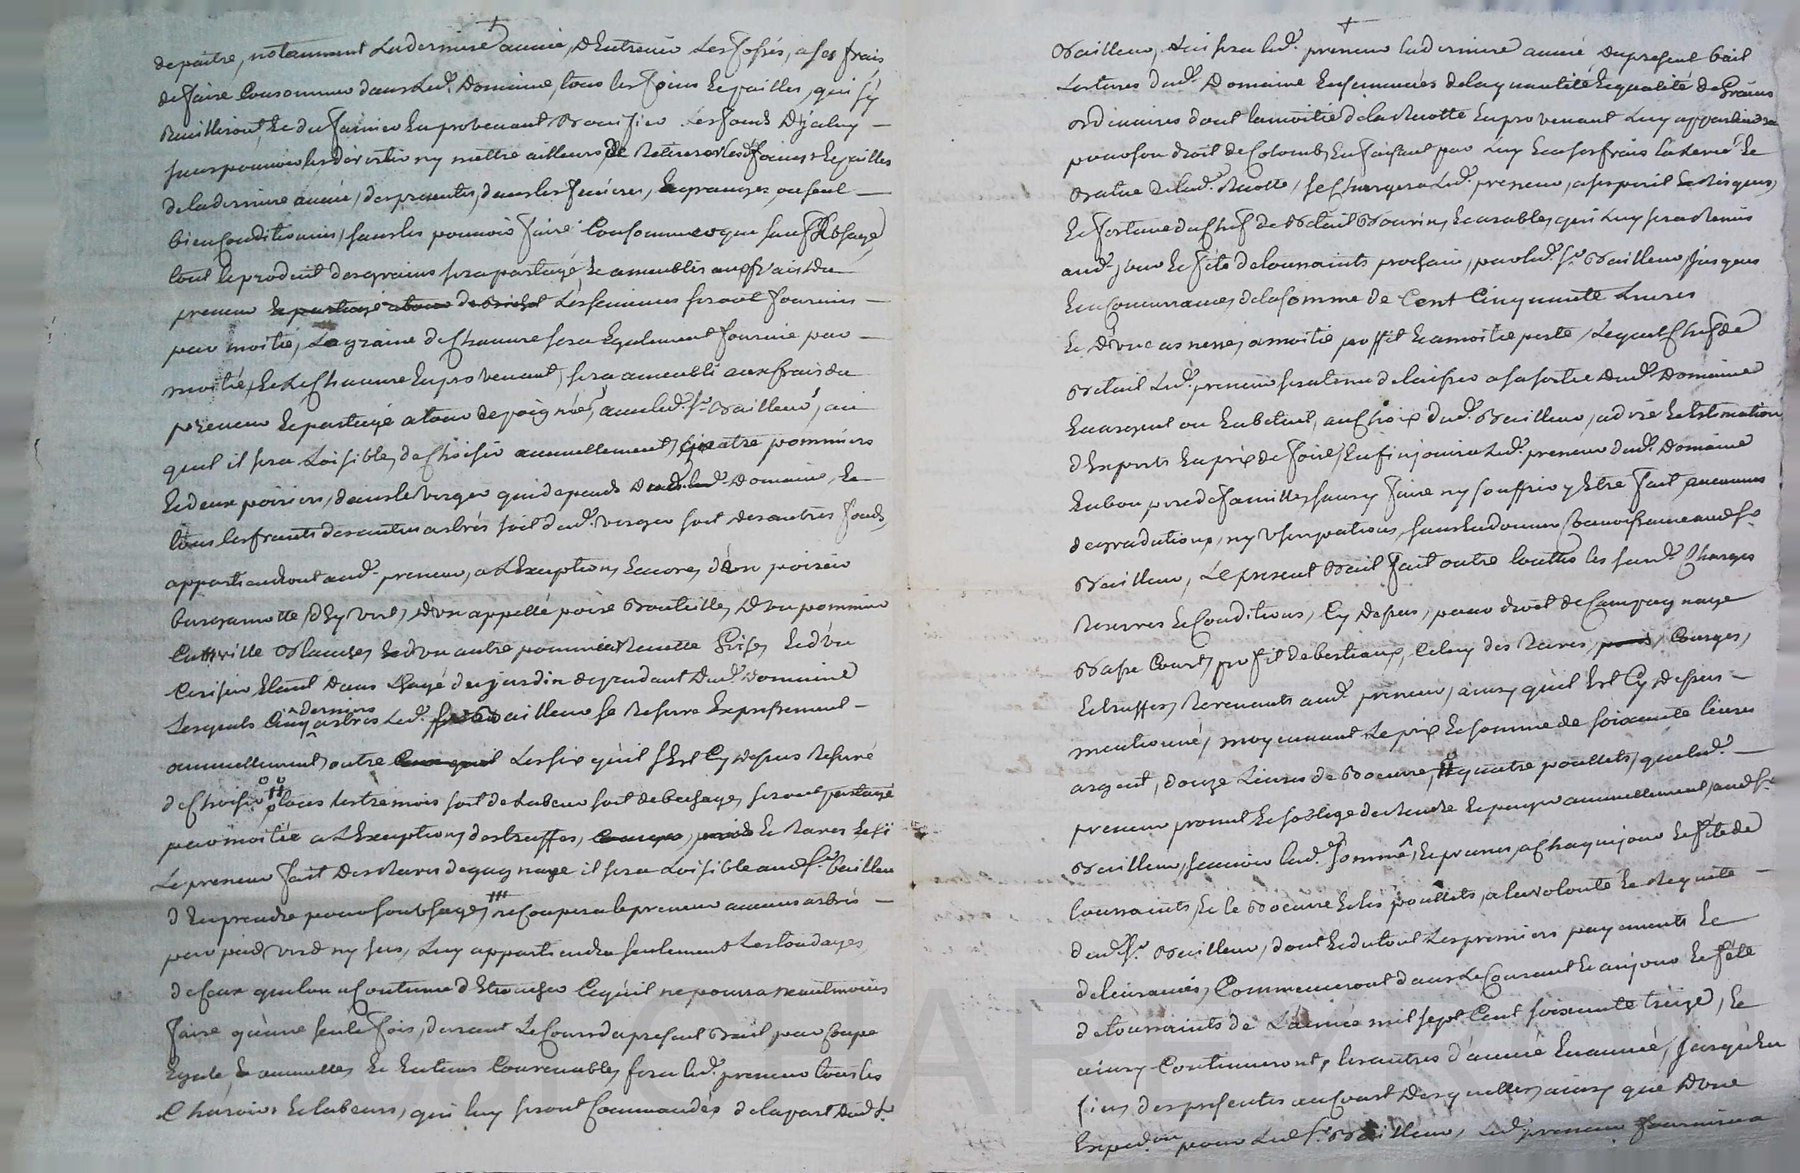 de paitre, notamment La derniere année, d'Entretenir Les fossés, a ses frais
de faire Consommer dans Led.t Domaine, tous les foins et pailles, qui s'y
Cuilliront et du fumier En provenant Bonifier Les fonds D'jceluy –
sans pouvoir les divertir ny mettre ailleurs, de Reserver les foins et pailles
de la derniere année, des presentes, dans les fenieres, et granges, ou seul –
bien Conditionnés, sans les pouvoir faire Consommer que sans abusage,
tout le produit des grains sera partagé et ameublis aux frais du
preneur et partagé Les semences seront fournies –
par moitié, La graine de Chanvre sera Egalement fournie par –
moitié, et Le Chanvre En provenant, sera ameubli aux frais du
preneur et partagé a tour de poignée, avec led.t S.r Bailleur, au
quel il sera Loisible, de Choisir annuellement, quatre pommiers
et deux poiriers, dans le verger qui depend dud.t Domaine, et
tous les fruits des autres arbres soit dud.t verger soit des autres fonds,
appartiendront aud.t preneur, a L'Exception, Encore, d'un poirier
bergamotte, d'hyvert, d'un appellé poire Bouteille, d'un pommier
Calleville Blanche, et d'un autre pommier Renette Grise, et d'un
Cerisier Etant Dans L'hayé du jardin dependant dud.t Domaine
Lesquels Cinq derniers arbres Led.t S.r Bailleur se Reserve Expressement –
annuellement, outre Les six qu'il s'Est Cy dessus Reservé
de Choisir, tous les tremois soit de Labour soit de bechage, seront partagé
par moitié a L'Exception, des truffes, et Raves et si
Le preneur fait Des Raves de gagnage il sera Loisible aud.t S.r Bailleur
d'En prendre pour son usage, ne Coupera le preneur aucuns arbres –
par pied, verd ny sec, Luy appartiendra seulement Les tondages,
de Ceux que l'on a Coutume d'Etroncher Ce qu'il ne pourra neantmoins
faire qu'une seule fois, durant Le Cours du present Bail, par Coupe
Egale, et annuelle, et En tems Convenable, fera led.t preneur tous les
Charois et labeurs, qui luy seront Commandés de la part Dud.t S.r
Bailleur, Laissera led.t preneur la derniere année, du present bail
Les terres dud.t Domaine Ensemencées de la quantité et qualité de Grains
ordinaires dont la moitié de la Recotte En provenant Luy appartiendra
pour son droit de Colomb, En faisant par luy Et a ses frais La Levée et
Batue de lad.t Recotte, se Chargera Led.t preneur, a ses peril et Risques,
et fortune du Chef de Betail Bovin, et arable, qui Luy sera Remis
aud.t jour et fête de toussaints prochain, par led.t S.r Bailleur, jusques
En Concurrance, de la somme de Cent Cinquante Livres
et d'une asnesse, a moitié proffit et a moitié perte, Lequel Chef de
Betail Led.t preneur sera tenu de laisser a sa sortie dud.t Domaine
En argent ou En betail, au Choix dud.t Bailleur, a dire et Estimation
d'Experts En prix de foire, Enfin jouira Led.t preneur dud.t Domaine
En bon pere de famille, sans y faire ny souffrir y Etre fait aucunes
degradations, ny usurpations, sans En donner Connoissance aud.t S.r
Bailleur, Le present Bail fait outre touttes les susd.t Charges
Reserves et Conditions, Cy dessus, pour droit de Campagnage
Basse Court, profit de bestiaux, Celuy des Raves, Courges,
et truffes, Revenants aud.t preneur, ainsy qu'il Est Cy dessus –
mentionné, moyennant Le prix et somme de soixante livres
argent, douze Livres de Beurre, quatre poullets, que led.t –
preneur promet et s'oblige de Rendre et payer annuellement, aud.t S.r
Bailleur, scavoir lad.t somme, et preneur, a Chaque jour et fête de
toussaints, et le Beurre et les poullets, a la volonté et Requete –
dud.t S.r Bailleur, dont et du tout Les premiers payements et
delivrances, Commenceront dans Le Courant et au jour et fête
de toussaints de L'année mil sept Cent soixante treize, et
ainsy Continueront, les autres d'année En année, jusqu'En
fin, des presentes au Court Desquelles, ainsy que d'une
Exped.on pour Led.t S.r Bailleur, Led.t preneur fournira
CHAREYRE